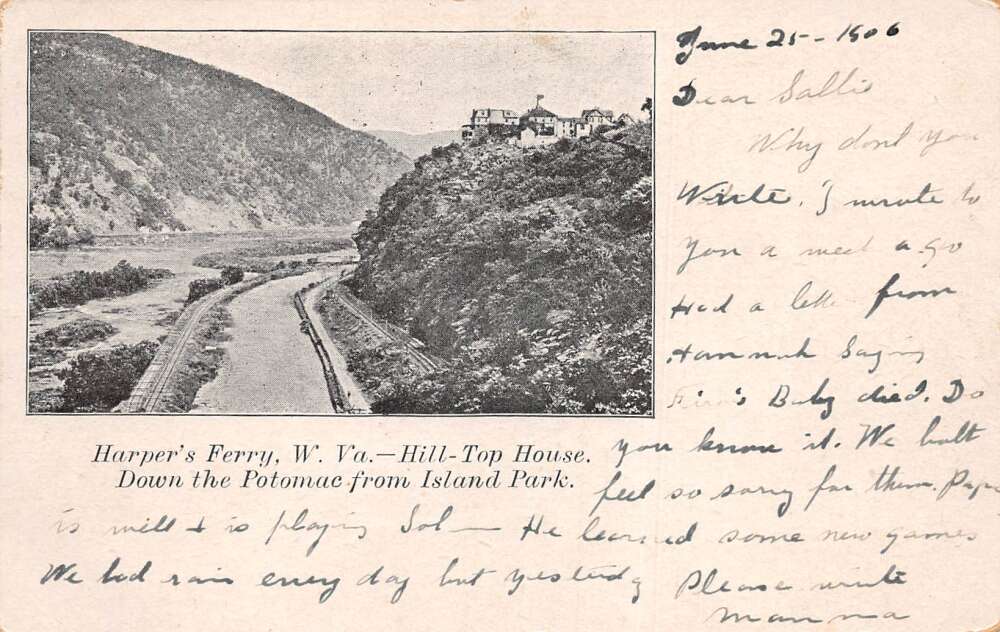 June 25 - 1906
Dear Sallie
Why dont you
Write. I wrote to
you a week ago
Had a lette from
Hannah Saying
Baby died. Do
you know it. We both
feel so sorry for them. Papa
is well & is playing Sol — He learned some new games
We had rain every day but yesterday Please write
Mamma
Harper's Ferry, W. Va.—Hill-Top House.
Down the Potomac from Island Park.